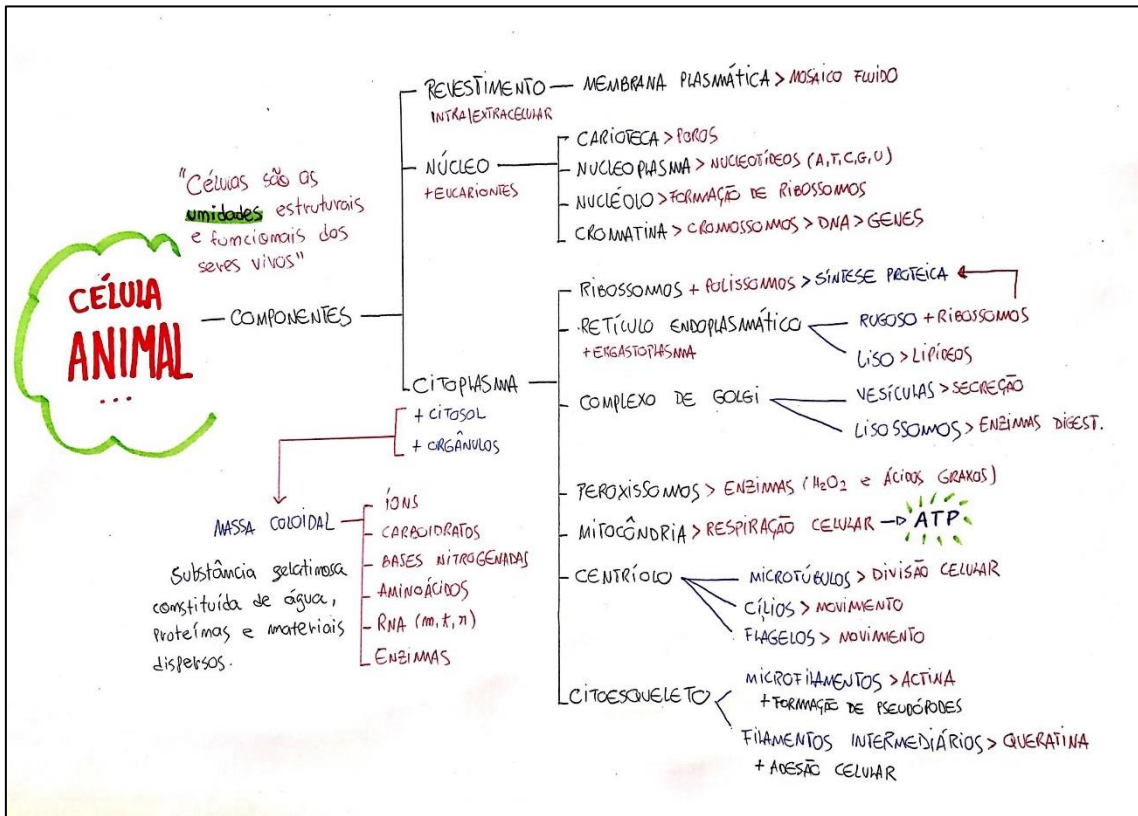 "Células são as
unidades estruturais
e funcionais dos
seres vivos"
CÉLULA
ANIMAL
...
COMPONENTES
REVESTIMENTO — MEMBRANA PLASMÁTICA > MOSAICO FLUIDO
INTRA/EXTRACELULAR
NÚCLEO
+ EUCARIONTES
CARIOTECA > POROS
NUCLEOPLASMA > NUCLEOTÍDEOS (A,T,C,G,U)
NUCLÉOLO > FORMAÇÃO DE RIBOSSOMOS
CROMATINA > CROMOSSOMOS > DNA > GENES
CITOPLASMA
+ CITOSOL
+ ORGÂNULOS
MASSA COLOIDAL
Substância gelatinosa
constituída de água,
proteínas e materiais
dispersos.
ÍONS
CARBOIDRATOS
BASES NITROGENADAS
AMINOÁCIDOS
RNA (m, t, r)
ENZIMAS
RIBOSSOMOS + POLISSOMOS > SÍNTESE PROTEICA
RETÍCULO ENDOPLASMÁTICO
+ ERGASTOPLASMA
RUGOSO + RIBOSSOMOS
LISO > LIPÍDEOS
COMPLEXO DE GOLGI
VESÍCULAS > SECREÇÃO
LISOSSOMOS > ENZIMAS DIGEST.
PEROXISSOMOS > ENZIMAS (H₂O₂ e ÁCIDOS GRAXOS)
MITOCÔNDRIA > RESPIRAÇÃO CELULAR → ATP
CENTRÍOLO
MICROTÚBULOS > DIVISÃO CELULAR
CÍLIOS > MOVIMENTO
FLAGELOS > MOVIMENTO
CITOESQUELETO
MICROFILAMENTOS > ACTINA
+ FORMAÇÃO DE PSEUDÓPODES
FILAMENTOS INTERMEDIÁRIOS > QUERATINA
+ ADESÃO CELULAR